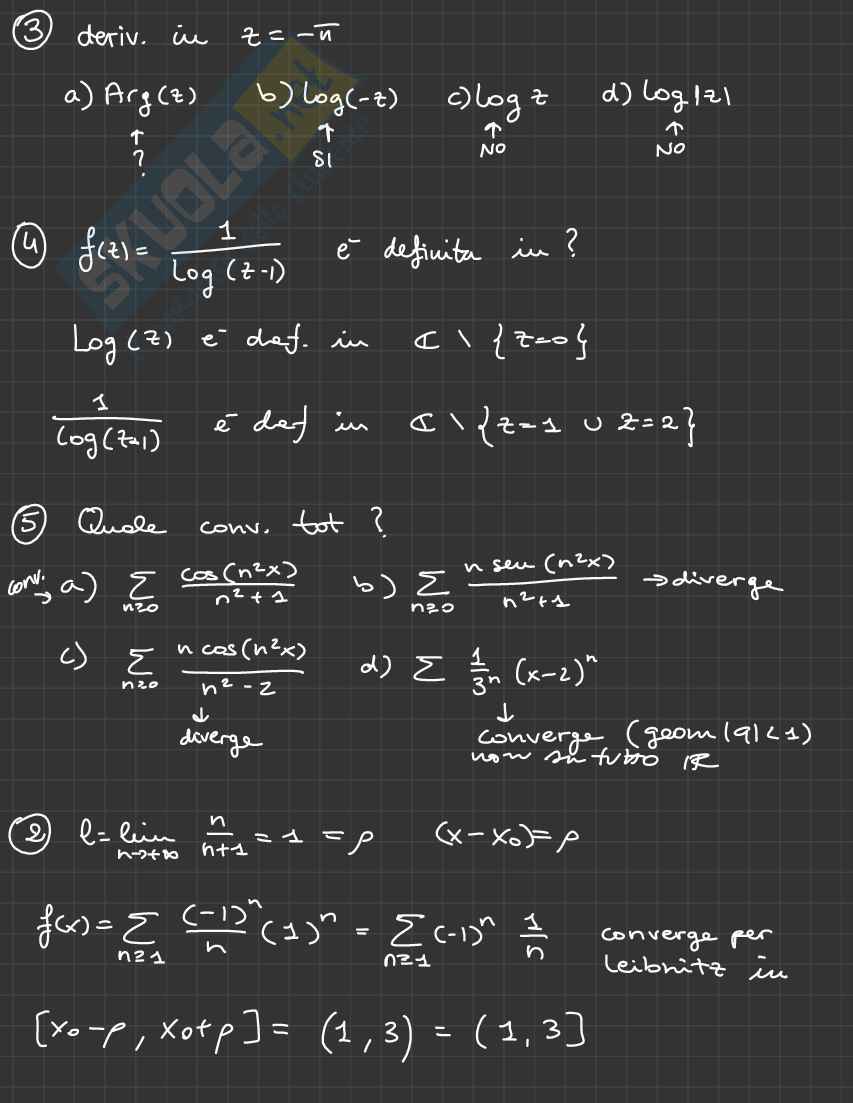 ③ deriv. in z = -π
a) Arg(z) b) Log(-z) c) log z d) Log|z|
↑ ↑ ↑ ↑
? SI NO NO
④ f(z) = 1/Log(z-1) è definita in ?
Log(z) è def. in ℂ \ {z=0}
1/Log(z-1) è def in ℂ \ {z=1 ∪ z=2}
⑤ Quale conv. tot ?
conv. → a) ∑_{n≥0} cos(n²x)/(n²+1) b) ∑_{n≥0} n sen(n²x)/(n²+1) → diverge
c) ∑_{n≥0} n cos(n²x)/(n²-2) d) ∑ 1/3ⁿ (x-2)ⁿ
↓ ↓
diverge converge (geom |q|<1)
non su tutto ℝ
② l = lim_{n→+∞} n/(n+1) = 1 = ρ (x-x₀) = ρ
f(x) = ∑_{n≥1} (-1)ⁿ/n (1)ⁿ = ∑_{n≥1} (-1)ⁿ 1/n converge per
Leibnitz in
[x₀-ρ, x₀+ρ] = (1,3) = (1,3]
SKUOLA.net